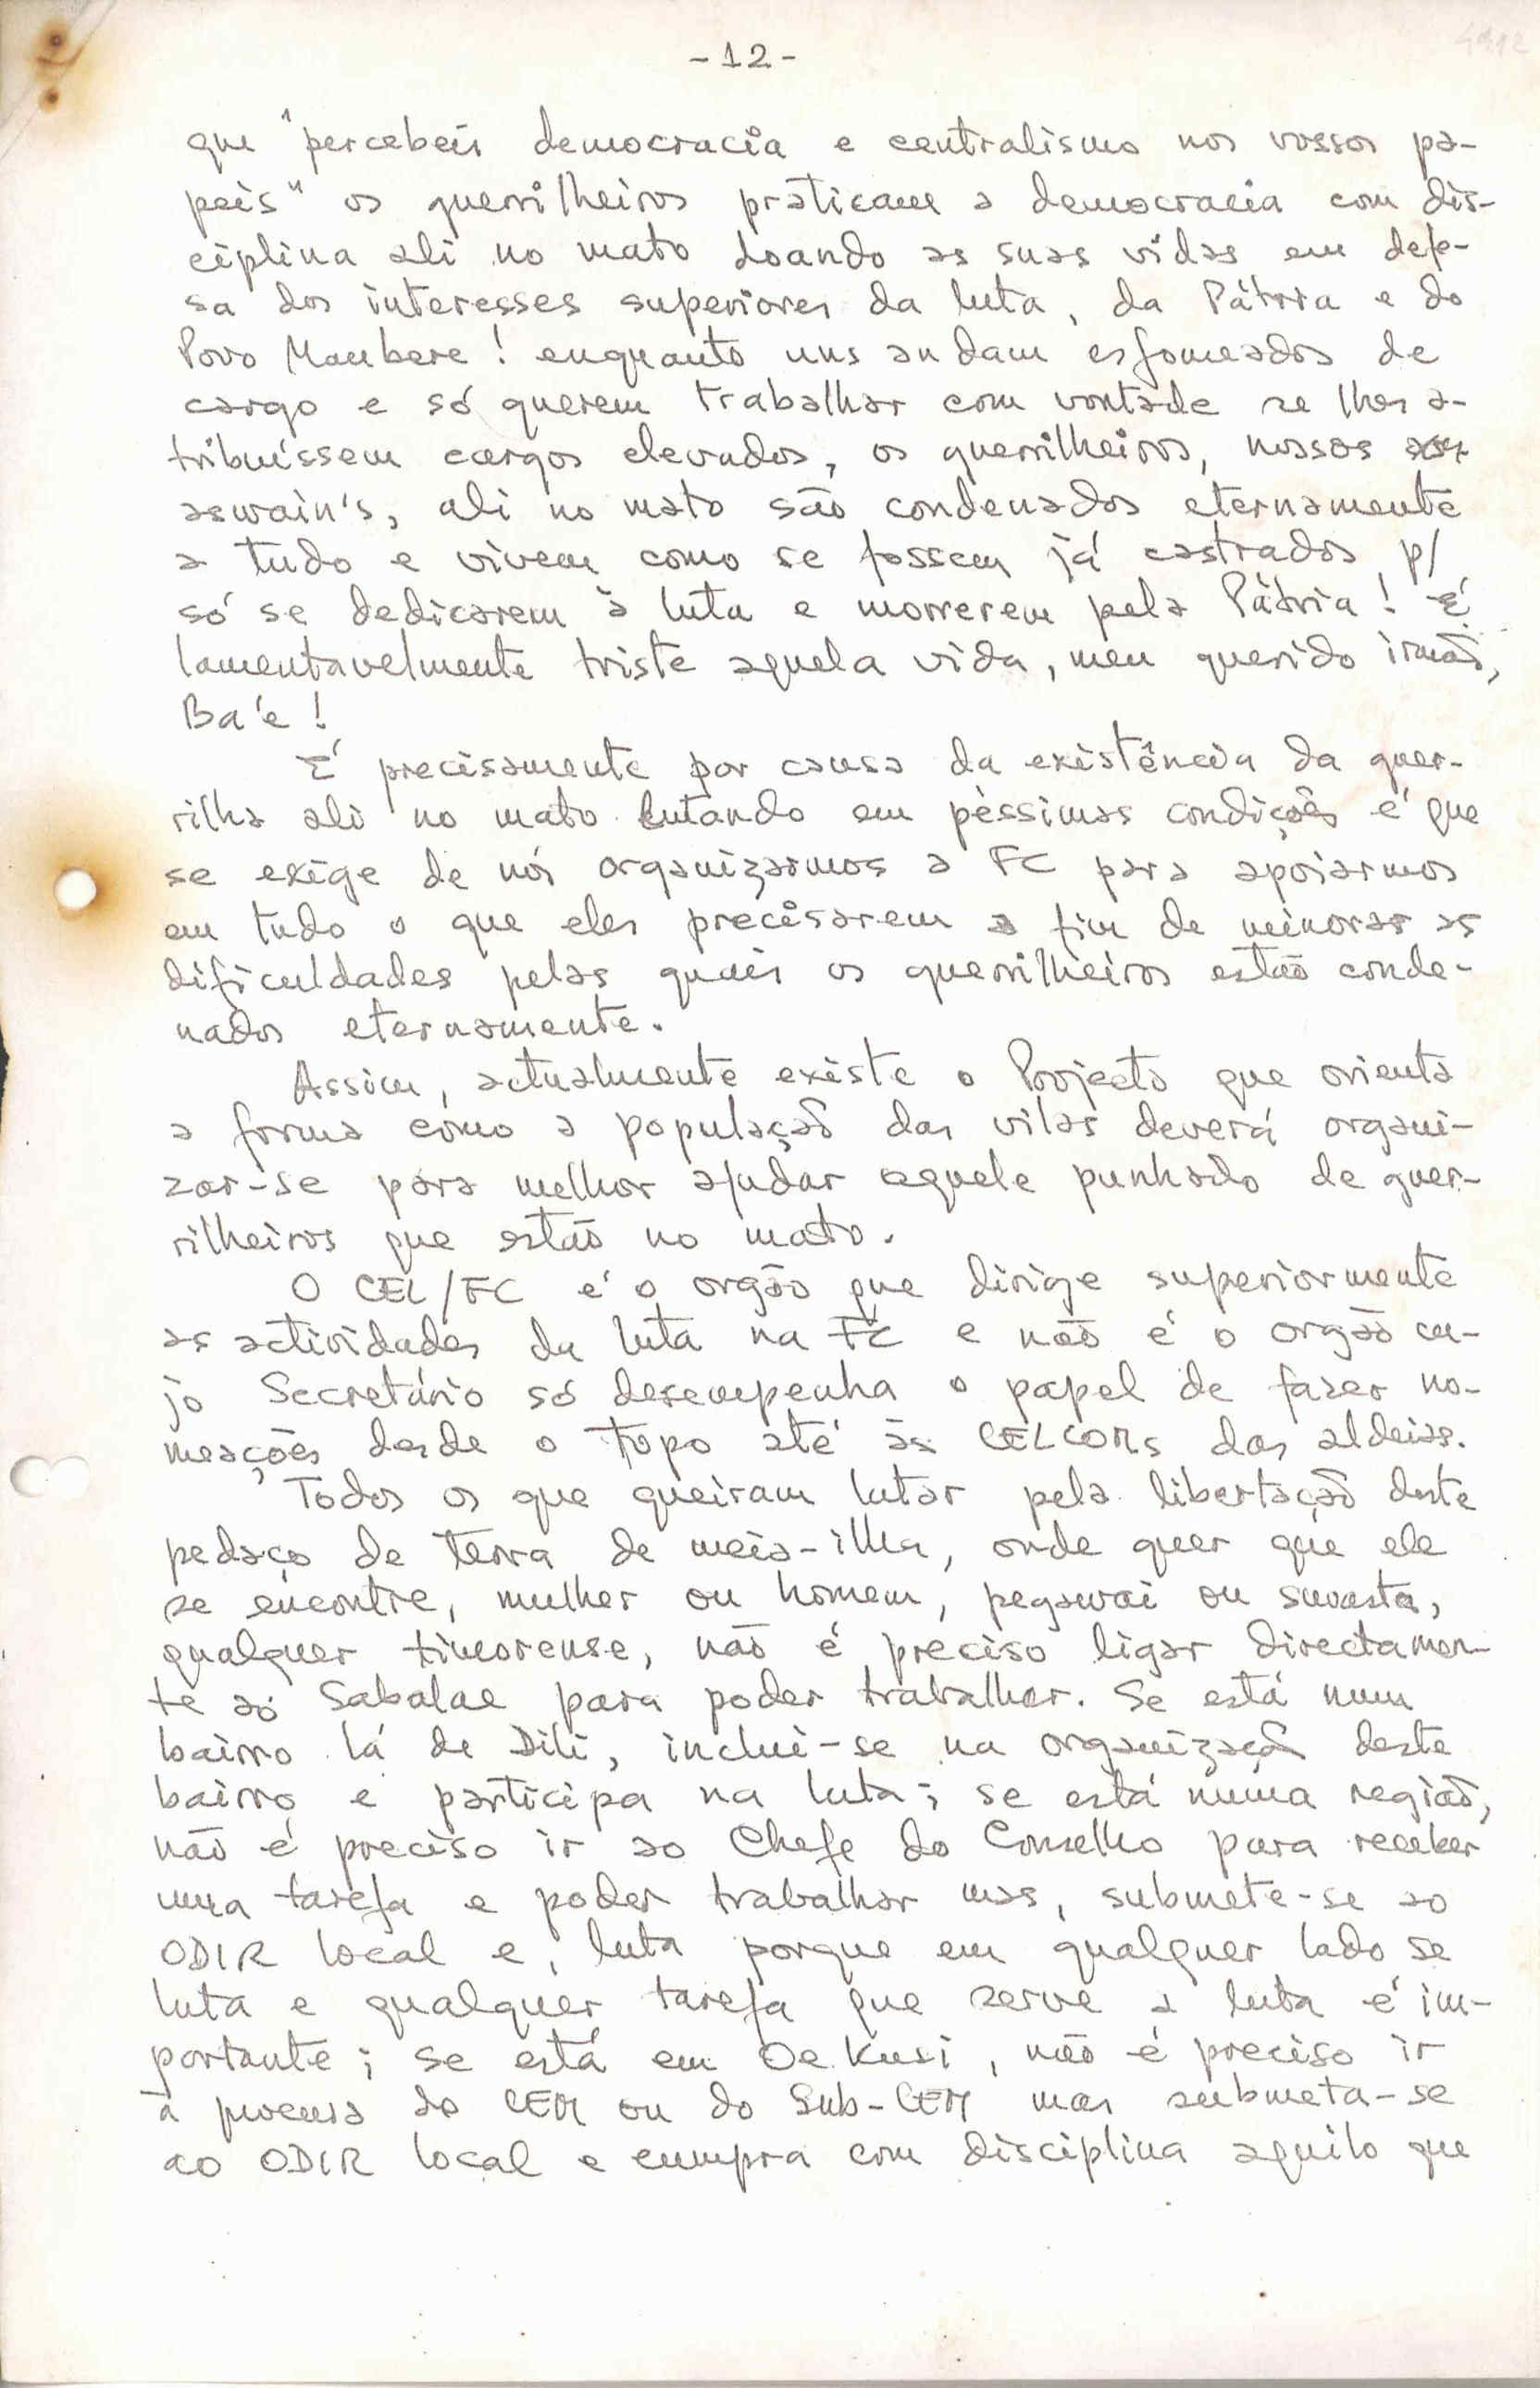 -12-
que "percebeis democracia e centralismo nos vossos pa-
peis" os guerrilheiros práticam a democracia com dis-
ciplina ali no mato doando as suas vidas em defe-
sa dos interesses superiores da luta, da Pátria e do
Povo Maubere! enquanto uns andam esfomeados de
cargo e só querem trabalhar com vontade se lhes a-
tribuíssem cargos elevados, os guerrilheiros, nossos
aswain's, ali no mato são condenados eternamente
a tudo e vivem como se fossem já castrados p/
só se dedicarem à luta e morrerem pela Pátria! É
lamentavelmente triste aquela vida, meu querido irmão,
Ba'e!
É precisamente por causa da existência da guer-
rilha ali no mato lutando em péssimas condições é que
se exige de nós organizarmos a FC para apoiarmos
em tudo o que eles precisarem a fim de minorar as
dificuldades pelas quais os guerrilheiros estão conde-
nados eternamente.
Assim, actualmente existe o Projecto que orienta
a forma como a população das vilas deverá organi-
zar-se para melhor ajudar aquele punhado de guer-
rilheiros que estão no mato.
O CEL/FC é o orgão que dirige superiormente
as actividades da luta na FC e não é o orgão cu-
jo Secretário só desempenha o papel de fazer no-
meações desde o topo até às CELCOMs das aldeias.
Todos os que queiram lutar pela libertação deste
pedaço de terra de meia-ilha, onde quer que ele
se encontre, mulher ou homem, pegawai ou swasta,
qualquer timorense, não é preciso ligar directamen-
te ao Sabalae para poder trabalhar. Se está num
bairro lá de Dili, inclui-se na organização deste
bairro e participa na luta; se está numa região,
não é preciso ir ao Chefe do Conselho para receber
uma tarefa e poder trabalhar mas, submete-se ao
ODIR local e, luta porque em qualquer lado se
luta e qualquer tarefa que serve a luta é im-
portante; se está em Oe.Kusi, não é preciso ir
à procura do CEM ou do Sub-CEM mas submeta-se
ao ODIR local e cumpra com disciplina aquilo que